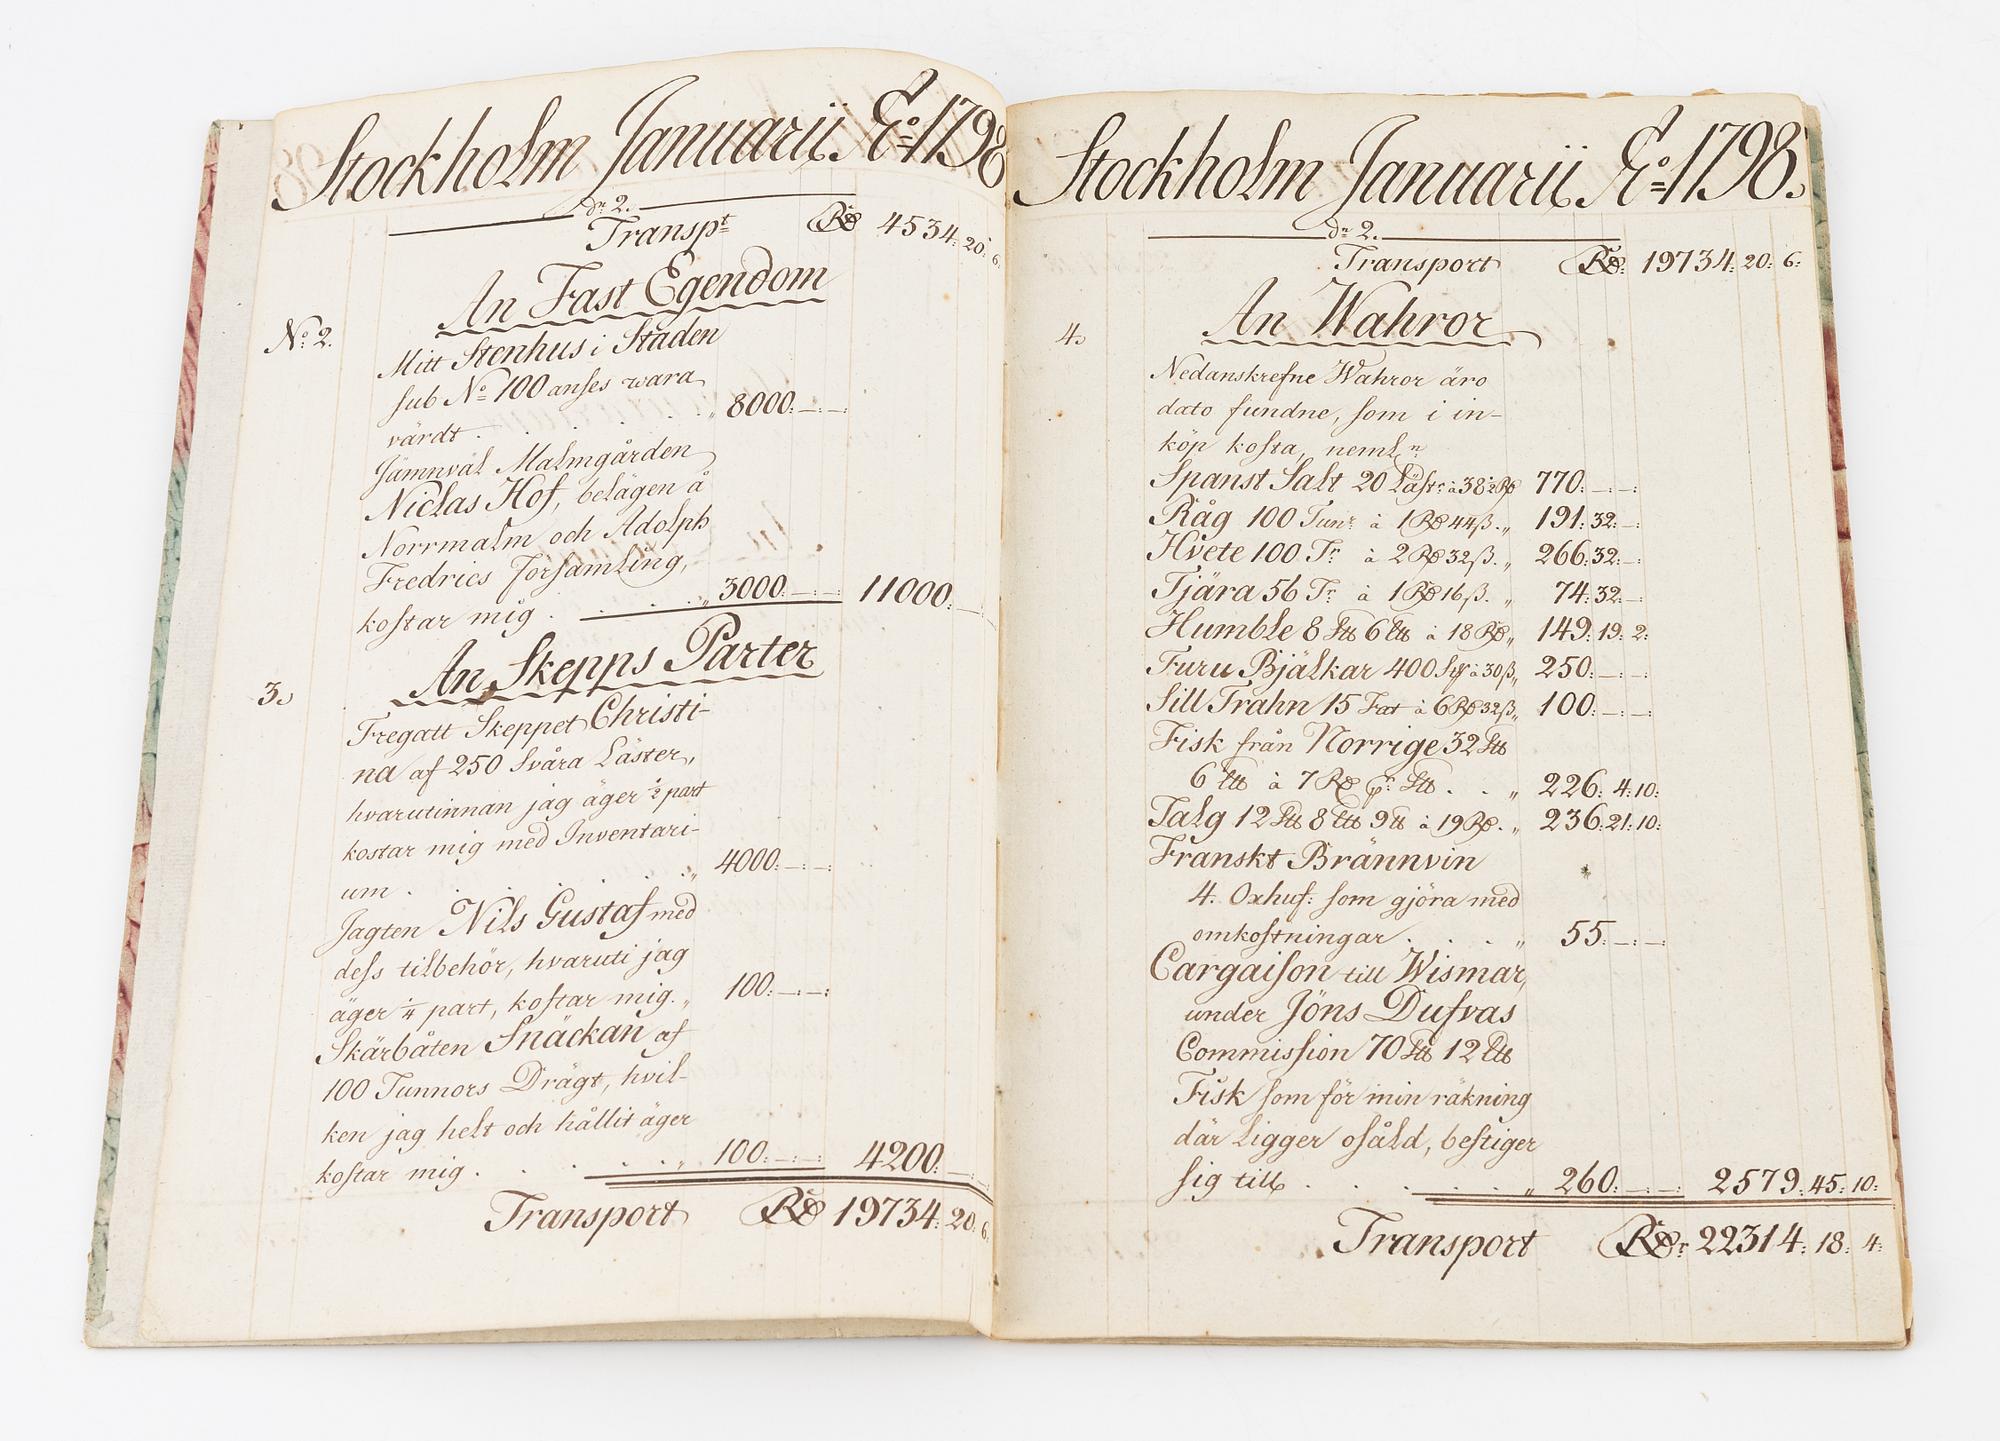 Stockholm Januarii Aº 1798
dn 2.
Transpt Rd 4534: 20: 6:
An Fast Egendom
Nº 2.
Mitt Stenhus i Staden
sub Nº 100 anses wara
värdt . . . . . . „ 8000:—:—:
Jämnväl Malmgården
Niclas Hof, belägen å
Norrmalm och Adolph
Fredrics Församling,
kostar mig . . . . . „ 3000:—:—: 11000:—
An Skepps Parter
3.
Fregatt Skeppet Christi-
na af 250 Svåra Läster,
hvarutinnan jag äger ½ part
kostar mig med Inventari-
um . . . . . . „ 4000:—:—:
Jagten Nils Gustaf med
dess tilbehör, hvaruti jag
äger ¼ part, kostar mig. „ 100:—:—:
Skärbåten Snäckan af
100 Tunnors Drägt, hvil-
ken jag helt och hållit äger
kostar mig . . . . . „ 100:—:—: 4200:—
Transport Rd 19734: 20: 6:
Stockholm Januarii Aº 1798.
dn 2.
Transport Rd: 19734: 20: 6:
4.
An Wahror
Nedanskrefne Wahror äro
dato fundne, som i in-
köp kosta, nemln
Spanst Salt 20 Läst: à 38½ Rd 770:—:—:
Råg 100 Tunr à 1 Rd 44ß. „ 191: 32:—:
Hvete 100 Tr à 2 Rd 32ß. „ 266: 32:—:
Tjära 56 Tr à 1 Rd 16ß. „ 74: 32:—:
Humble 8 Stt 6 Ltt à 18 Rd „ 149: 19: 2:
Furu Bjälkar 400 St à 30ß „ 250:—:—:
Sill Trahn 15 Fat à 6 Rd 32ß „ 100:—:—:
Fisk från Norrige 32 Stt
6 Ltt à 7 Rd pr Stt . . „ 226: 4: 10:
Talg 12 Stt 8 Ltt 9 tt à 19 Rd. „ 236: 21: 10:
Franskt Brännvin
4. Oxhuf: som gjöra med
omkostningar . . . „ 55:—:—:
Cargaison till Wismar,
under Jöns Dufvas
Commission 70 Stt 12 Ltt
Fisk som för min räkning
där ligger osåld, bestiger
sig till . . . . . „ 260:—:—: 2579: 45: 10:
Transport Rdr 22314: 18: 4: